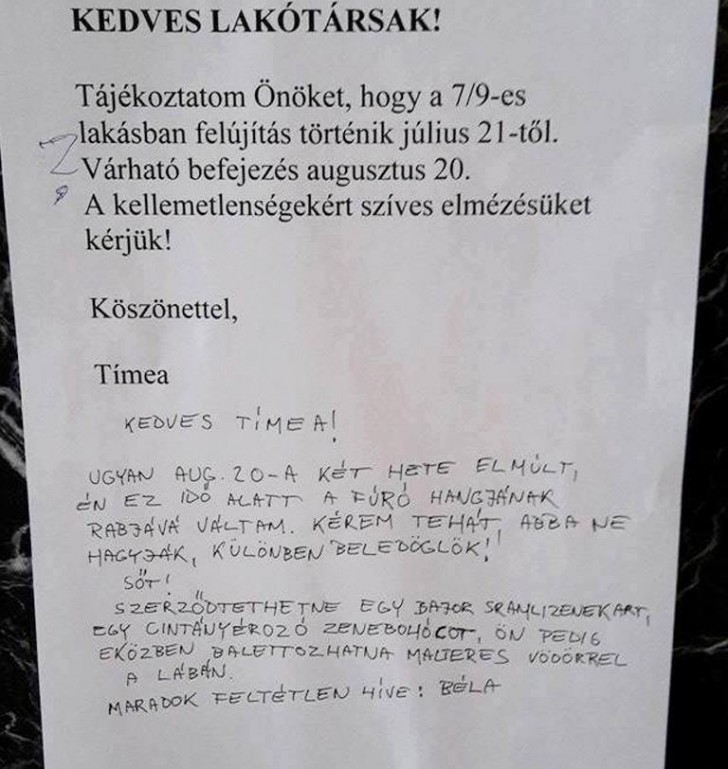 KEDVES LAKÓTÁRSAK!
Tájékoztatom Önöket, hogy a 7/9-es
lakásban felújítás történik július 21-től.
Várható befejezés augusztus 20.
A kellemetlenségekért szíves elmézésüket
kérjük!
Köszönettel,
Tímea
KEDVES TÍMEA!
UGYAN AUG. 20-A KÉT HETE ELMÚLT,
ÉN EZ IDŐ ALATT A FÚRÓ HANGJÁNAK
RABJÁVÁ VÁLTAM. KÉREM TEHÁT, ABBA NE
HAGYJÁK, KÜLÖNBEN BELEDÖGLÖK!
SŐT!
SZERZŐDTETHETNE EGY BAJOR SRAMLIZENEKART,
EGY CINTÁNYÉROZÓ ZENEBOHÓCOT, ÖN PEDIG
EKÖZBEN BALETTOZHATNA MALTERES VÖDÖRREL
A LÁBÁN.
MARADOK FELTÉTLEN HÍVE: BÉLA